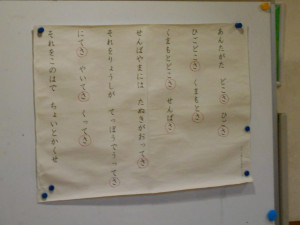 あんたがた どこさ ひごさ
ひごどこさ くまもとさ
くまもとどこさ せんばさ
せんばやまには たぬきがおってさ
それをりょうしが てっぽうでうってさ
にてさ やいてさ くってさ
それをこのはで ちょいとかくせ